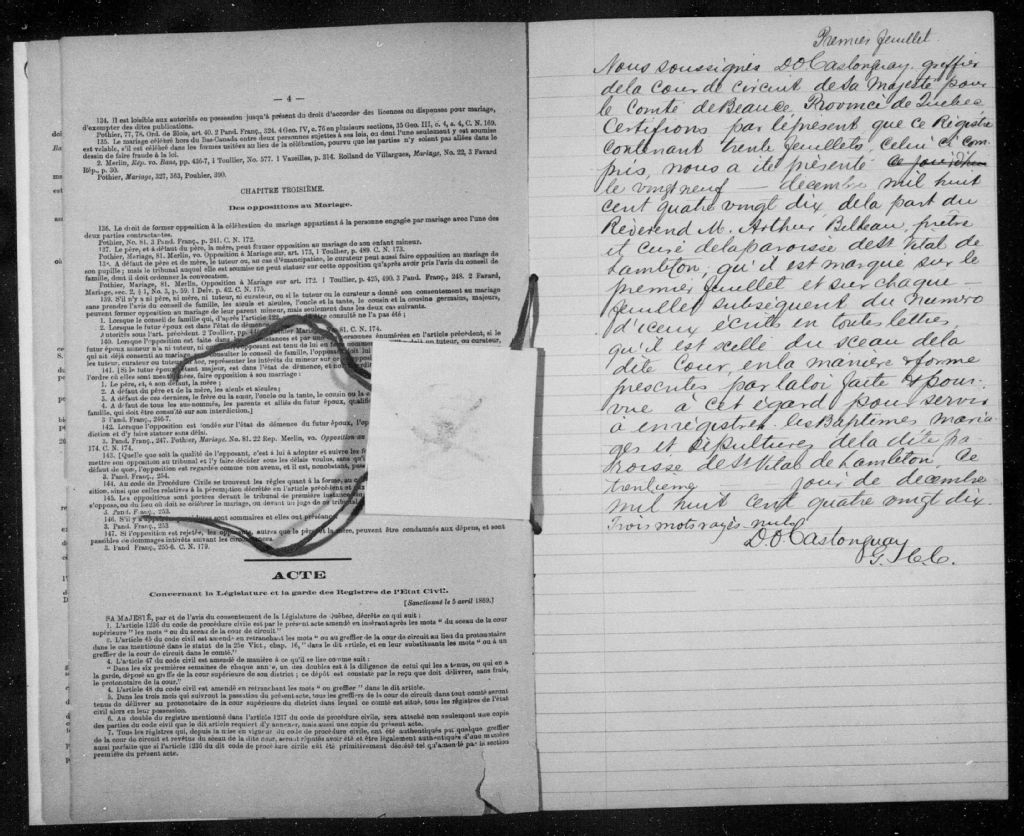 — 4 —
134. Il est loisible aux autorités en possession jusqu'à présent du droit d'accorder des licences ou dispenses pour mariage,
d'exempter des dites publications.
Pothier, 77, 78. Ord. de Blois, art. 40. 2 Pand. Franç., 324. 4 Geo. IV, c. 76 en plusieurs sections, 35 Geo. III, c. 4, s. 4, C. N. 169.
135. Le mariage célébré hors du Bas-Canada entre deux personnes sujettes à ses lois, ou dont l'une seulement y est soumise
est valide, s'il est célébré dans les formes usitées au lieu de la célébration, pourvu que les parties n'y soient pas allées dans le
dessin de faire fraude à la loi.
2. Merlin, Rép. vo. Bans, pp. 436-7, 1 Toullier, No. 577. 1 Vazeilles, p. 314. Rolland de Villargues, Mariage, No. 22, 3 Favard
Rép., p. 30.
Pothier, Mariage, 327, 363, Pouhier, 390.
CHAPITRE TROISIÈME.
Des oppositions au Mariage.
136. Le droit de former opposition à la célébration du mariage appartient à la personne engagée par mariage avec l'une des
deux parties contractantes.
Pothier, No. 81. 3 Pand. Franç., p. 241. C. N. 172.
137. Le père, et à défaut du père, la mère, peut former opposition au mariage de son enfant mineur.
Pothier, Mariage, 81. Merlin, vo. Opposition à Mariage sur art. 173, 1 Toullier, p. 489. C. N. 173.
138. A défaut de père et de mère, le tuteur ou, au cas d'émancipation, le curateur peut aussi faire opposition au mariage de
son pupille ; mais le tribunal auquel elle est soumise ne peut statuer sur cette opposition qu'après avoir pris l'avis du conseil de
famille, dont il doit ordonner la convocation.
Pothier, Mariage, 81. Merlin, Opposition à Mariage sur art. 172. 1 Toullier, p. 425, 490. 3 Pand. Franç., 248. 2 Favard,
Mariage, sec. 2, § 1, No. 3, p. 59. 1 Delv. p. 62. C. N. 175.
139. S'il n'y a ni père, ni mère, ni tuteur, ni curateur, ou si le tuteur ou le curateur a donné son consentement au mariage
sans prendre l'avis du conseil de famille, les aieuls et aieules, l'oncle et la tante, le cousin et la cousine germains, majeurs,
peuvent former opposition au mariage de leur parent mineur, mais seulement dans les deux cas suivants.
1. Lorsque le conseil de famille qui, d'après l'article 122, consulté ne l'a pas été ;
2. Lorsque le futur époux est dans l'état de démence
Autorités sous l'art. précédent. 2 Toullier, Mariage 81. C. N. 174.
140. Lorsque l'opposition est faite dans énumérées en l'article précédent, si le
futur époux mineur n'a ni tuteur, ni un tuteur, ou curateur,
141. [Si le futur étant majeur, est dans l'état de démence, et non
l'ordre où elles sont mentionnées, faire opposition à son mariage :
1. Le père, et, à son défaut, la mère ;
2. A défaut du père et de la mère, les aieuls et aieules ;
3. A défaut de ces derniers, le frère ou la sœur, l'oncle ou la tante, le cousin ou la
4. A défaut de tous les sus-nommés, les parents et alliés du futur époux,
famille, qui doit être consulté sur son interdiction.]
3 Pand. Franç., 246-7.
142. Lorsque l'opposition est fondée sur l'état de démence du futur époux,
diction et d'y faire statuer sans délai.
3. Pand. Franç., 247. Pothier, Mariage, No. 81. 22 Rep. Merlin, vo. Opposition au
174. C. N. 174.
143. [Quelle que soit la qualité de l'opposant, c'est à lui à adopter et suivre les
mettre son opposition au tribunal et l'y faire décider sous les délais voulus, sans
défaut de quoi, l'opposition est regardée comme non avenue, et il est, nonobstant,
3. Pand. Franç., 254.
144. Au code de Procédure Civile se trouvent les règles quant à la forme,
sition, ainsi que celles relatives à la péremption décrétée en l'article précédent et
145. Les oppositions sont portées devant le tribunal de première instance
s'oppose, ou du lieu où doit se célébrer le mariage, ou devant un juge de
3. Pand. Franç., 253
sont sommaires et elles ont
3. Pand. Franç., 253
147. Si l'opposition est rejetée, les opposants, autres que le père et la mère, peuvent être condamnés aux dépens, et sont
passibles de dommages intérêts suivant les circonstances.
3. Pand. Franç., 255-6. C. N. 179.
ACTE
Concernant la Législature et la garde des Registres de l'Etat Civil.
[Sanctionné le 5 avril 1869.]
SA MAJESTÉ, par et de l'avis du consentement de la Législature de Québec, décrète ce qui suit :
1. L'article 1236 du code de procédure civile est par le présent acte amendé en insérant après les mots " du sceau de la cour
supérieure " les mots " ou du sceau de la cour de circuit."
2. L'article 45 du code civil est amendé en retranchant les mots " ou au greffier de la cour de circuit au lieu du protonotaire
dans le cas mentionné dans le statut de la 25e Vict., chap. 16, " dans le dit article, et en leur substituant les mots " ou à un
greffier de la cour de circuit dans le comté."
4. L'article 47 du code civil est amendé de manière à ce qu'il se lise comme suit :
" Dans les six premières semaines de chaque année, un des doubles est à la diligence de celui qui les a tenus, ou qui en a
la garde, déposé au greffe de la cour supérieure de son district ; ce dépôt est constaté par le reçu que doit délivrer, sans frais,
le protonotaire de la cour."
4. L'article 48 du code civil est amendé en retranchant les mots " ou greffier " dans le dit article.
5. Dans les trois mois qui suivront la passation du présent acte, tous les greffiers de la cour de circuit dans tout comté seront
tenus de délivrer au protonotaire de la cour supérieure du district dans lequel ce comté est situé, tous les régistres de l'état
civil alors en leur possession.
6. Au double du registre mentionné dans l'article 1237 du code de procédure civile, sera attaché non seulement une copie
des parties du code civil que le dit article requiert d'y annexer, mais aussi une copie du présent acte.
7. Tous les régistres qui, depuis la mise en vigueur du code de procédure civile, ont été authentiqués par quelque greffier
de la cour de circuit et revêtus du sceau de la dite cour, seront réputés avoir été et être légalement authentiqués d'une manière
aussi parfaite que si l'article 1236 du dit code de procédure civile eût été primitivement décrété tel qu'amendé par la section
première du présent acte.
Premier feuillet
Nous soussignés D.O. Castonguay, greffier
de la cour de circuit de Sa Majesté pour
le Comté de Beauce Province de Québec
Certifions par le présent que ce Régistre
contenant trente feuillets, celui ci com-
pris, nous a été présenté ce jourd'hui
le vingt neuf — décembre mil huit
cent quatre vingt dix, de la part du
Révérend M. Arthur Belleau, prêtre
et curé de la paroisse de St Vital de
Lambton, qu'il est marqué sur le
premier feuillet et sur chaque
feuillet subséquent du numéro
d'iceux écrits en toutes lettres,
qu'il est scellé du sceau de la
dite Cour, en la manière & forme
prescrites par la loi faite & pour-
vue à cet égard pour servir
à enregistrer les Baptêmes, maria-
ges et Sépultures de la dite pa-
roisse de St Vital de Lambton, Ce
trentieme jour de décembre
mil huit cent quatre vingt dix.
Trois mots rayés nuls
D.O. Castonguay
G. C. C.